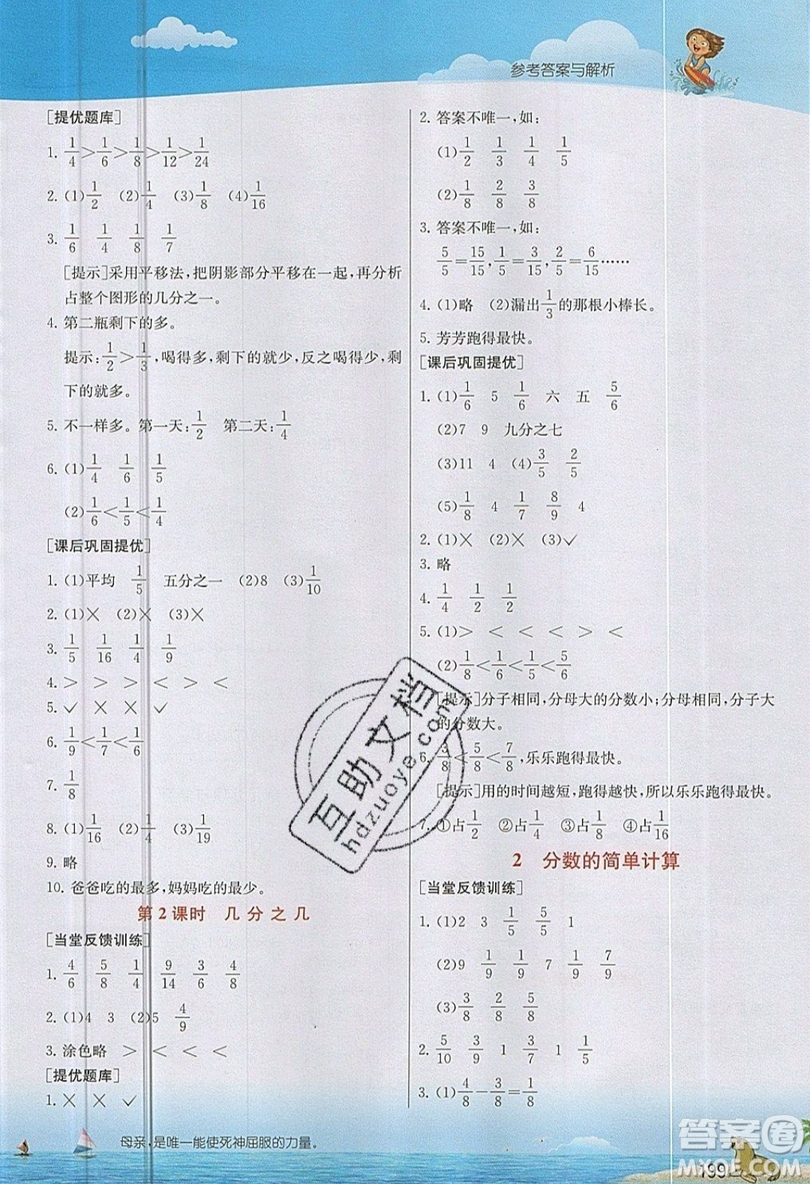 参考答案与解析
[提优题库]
1. 1/4>1/6>1/8>1/12>1/24
2. (1)1/2 (2)1/4 (3)1/8 (4)1/16
3. 1/6 1/4 1/8 1/7
[提示]采用平移法,把阴影部分平移在一起,再分析
占整个图形的几分之一。
4. 第二瓶剩下的多。
提示:1/2>1/3,喝得多,剩下的就少,反之喝得少,剩
下的就多。
5. 不一样多。第一天:1/2 第二天:1/4
6. (1)1/4 1/6 1/5
(2)1/6<1/5<1/4
[课后巩固提优]
1. (1)平均 1/5 五分之一 (2)8 (3)1/10
2. (1)× (2)× (3)×
3. 1/5 1/16 1/4 1/5
4. > > > < > <
5. ✓ × × ✓
6. 1/9<1/7<1/6
7. 1/8
8. (1)1/16 (2)1/4 (3)1/19
9. 略
10. 爸爸吃的最多,妈妈吃的最少。
第2课时 几分之几
[当堂反馈训练]
1. 4/6 5/8 1/4 9/14 3/6 4/8
2. (1)4 3 (2)5 4/9
3. 涂色略 > < < <
[提优题库]
1. × × ✓
2. 答案不唯一,如:
(1)1/2 1/3 1/4 1/5
(2)1/8 2/8 3/8
3. 答案不唯一,如:
5/5=15/15,1/5=3/15,2/5=6/15……
4. (1)略 (2)漏出1/3的那根小棒长。
5. 芳芳跑得最快。
[课后巩固提优]
1. (1)1/6 5 1/6 六 五 5/6
(2)7 9 九分之七
(3)11 4 (4)3/5 2/5
(5)1/8 4 1/7 8/9 4
2. (1)× (2)× (3)✓
3. 略
4. 1/4 1/2 1/2
5. (1)> < < < > <
(2)1/8<1/6<1/5<4/5
[提示]分子相同,分母大的分数小;分母相同,分子大
的分数大。
6. 3/8<5/8<7/8,乐乐跑得最快。
[提示]用的时间越短,跑得越快,所以乐乐跑得最快。
7. ①占1/2 ②占1/4 ③占1/8 ④占1/16
2 分数的简单计算
[当堂反馈训练]
1. (1)2 3 1/5 5/5 1
(2)9 1/9 7 1/9 7/9
(3)3/8 2/8 5/8
2. 5/10 3/9 1/7 1
3. (1)4/8-3/8=1/8
母亲,是唯一能使死神屈服的力量。
199
互助文档
hdzuoye.com
答案圈
MXQE.COM